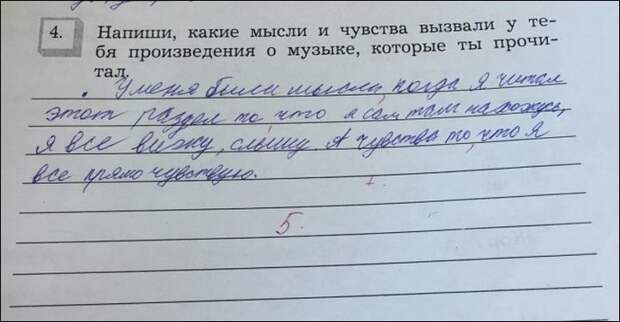 4. Напиши, какие мысли и чувства вызвали у те-
бя произведения о музыке, которые ты прочи-
тал.
У меня были мысли, когда я читал
этот раздел то, что я сам там нахожусь,
я все вижу, слышу. А чувства то, что я
все прямо чувствую.
5.